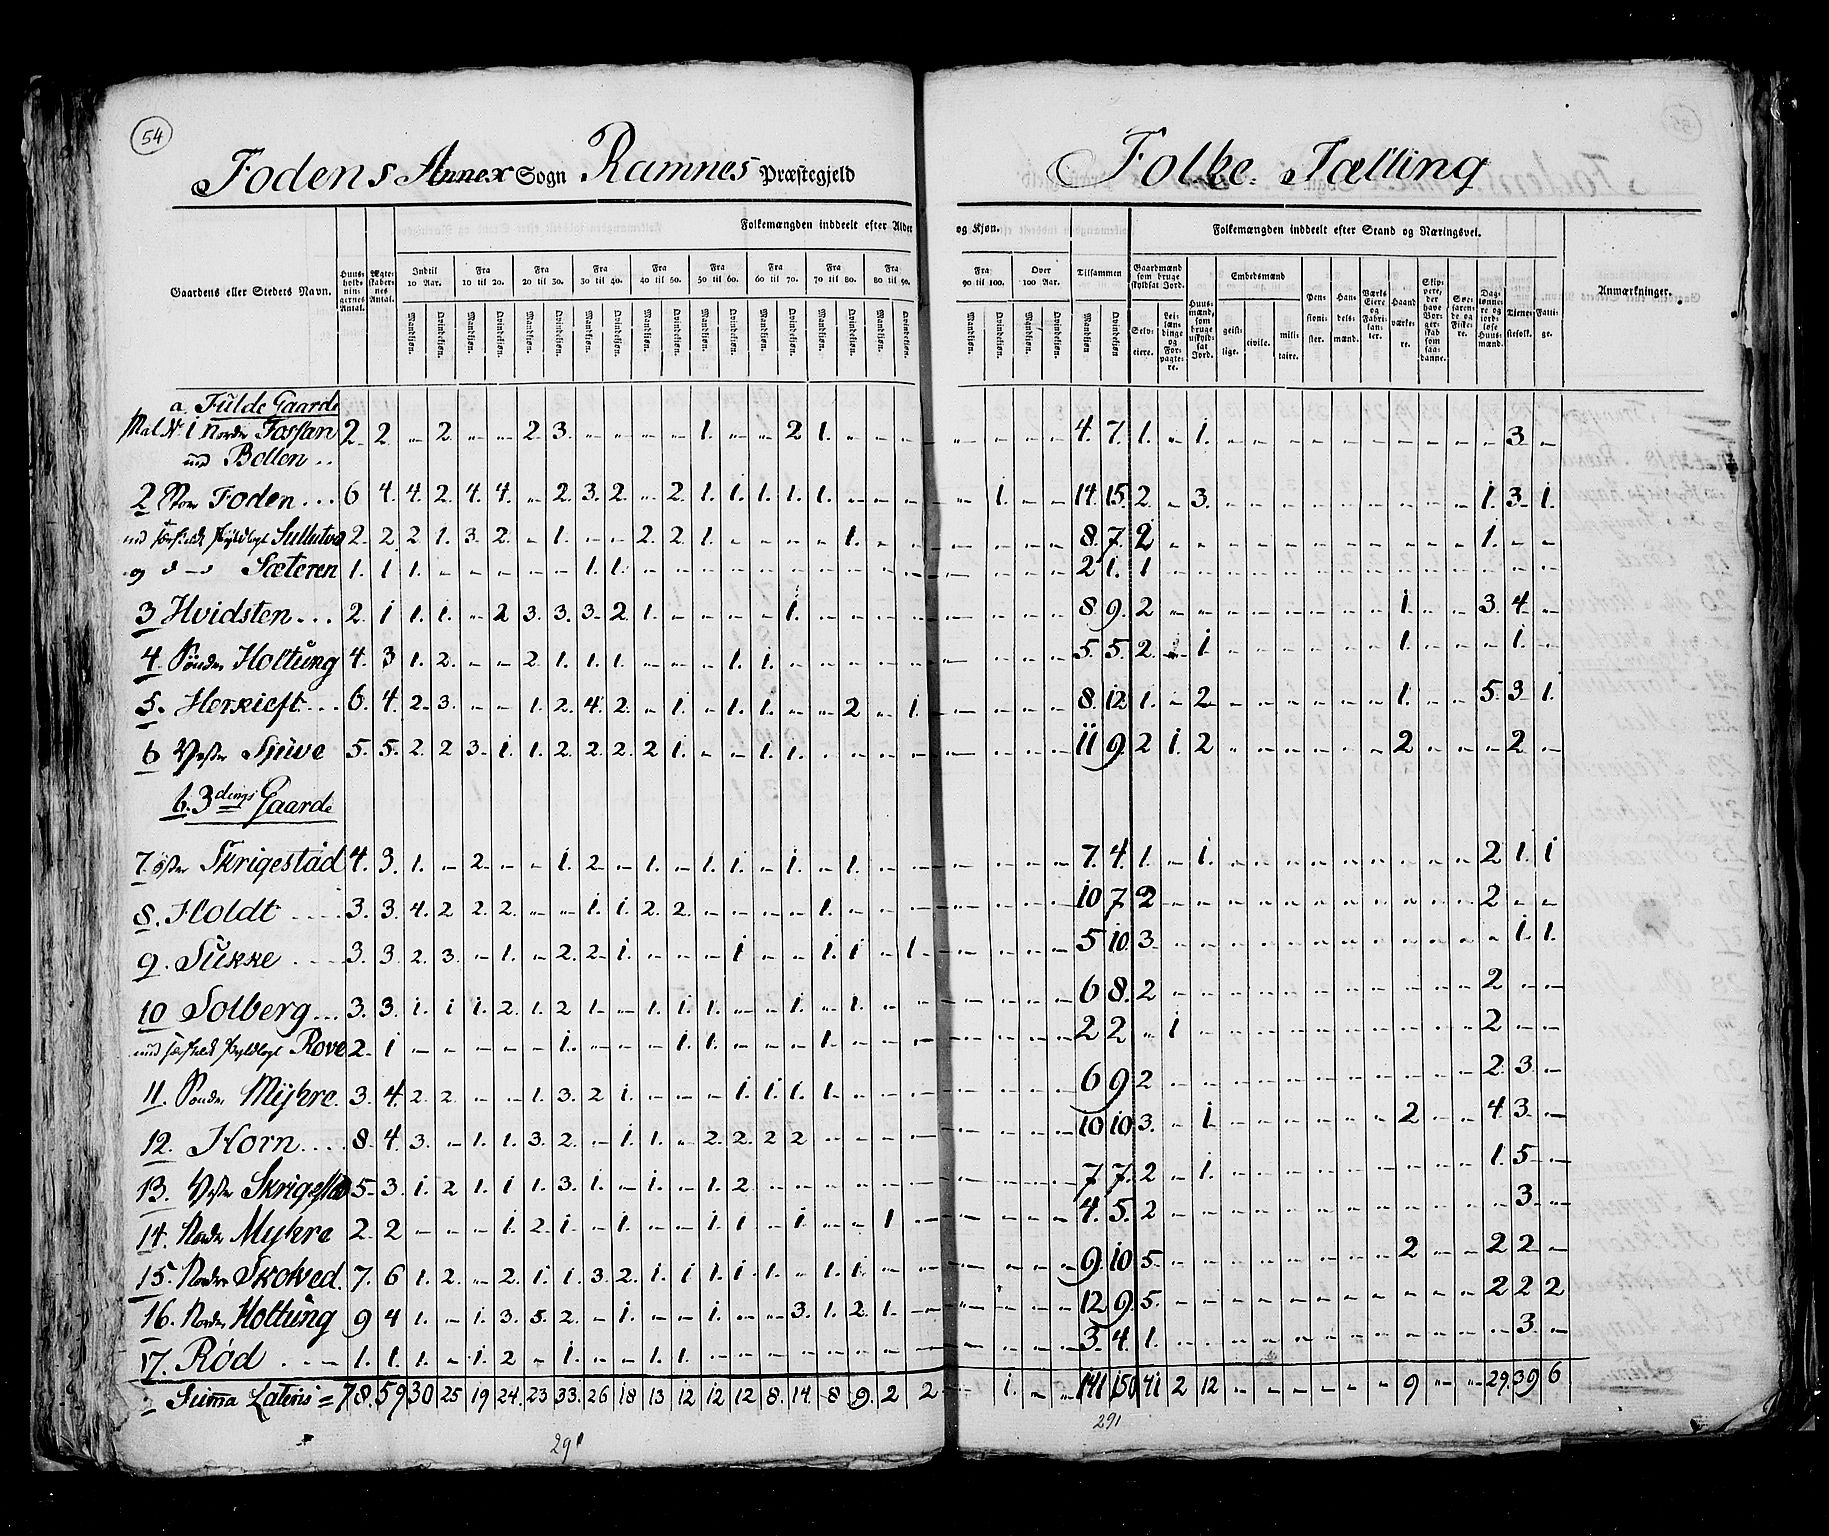 54
Fodens Annex Sogn Ramnes Præstegjeld
Folke-Tælling
Gaardens eller Stedets Navn.
Huus-holdnin-gernes Antal.
Ægte-skaber-nes Antal.
Folkemængden inddeelt efter Alder og Kjøn.
Indtil 10 Aar.
Fra 10 til 20.
Fra 20 til 30.
Fra 30 til 40.
Fra 40 til 50.
Fra 50 til 60.
Fra 60 til 70.
Fra 70 til 80.
Fra 80 til 90.
Fra 90 til 100.
Over 100 Aar.
Tilsammen
Mandkiøn. Qvindekiøn.
Folkemængden inddeelt efter Stand og Næringsvei.
Gaardmænd som bruge skyldsat Jord.
Selv-eiere.
Lei-læn-dinge og For-pagte-re.
Huus-mænd, som bruge uskyld-sat Jord.
Embedsmænd
geist-lige. civile. mili-taire.
Pen-sioni-ster.
Han-dels-mænd.
Værks Eiere og Fabri-kan-ter.
Haand-værke-re.
Skip-pere, der have Bor-ger-skab som saa-danne.
Søe-faren-de og Fiske-re.
Dag-lønne-re og jord-løse Huus-mænd.
Tiene-stefolk.
Fatti-ge.
Anmærkninger.
a. Fulde Gaarde
Mat. Nr. 1 Nordr Fossan 2 2 - 2 - - 2 3 - - - - 1 - - 2 1 - - - - - - - 4 7 1 - 1 - - - - - - - - - - 3 -
und Bollen
2 Stor Foden 6 4 4 2 4 4 - 2 3 2 - 2 1 1 1 1 1 - - - - 1 - - 14 15 2 - 3 - - - - - - - - - 1 3 1
und særskilt skyldlagt Sullutvo 2 2 2 1 3 2 - 1 - - 2 2 1 - - - - 1 - - - - - - 8 7 2 - - - - - - - - - - - 1 - -
og d - d Sæteren 1 1 1 - - - - - 1 1 - - - - - - - - - - - - - - 2 1 1 - - - - - - - - - - - - - -
3 Hvidsten 2 1 1 1 - 2 3 3 3 2 1 - - - - 1 - - - - - - - - 8 9 2 - - - - - - - - 1 - - 3 4 -
4 Sönder Holtung 4 3 1 2 - - 2 1 1 1 - - - 1 1 - - - - - - - - - 5 5 2 - 1 - - - - - - 1 - - - 1 -
5. Herkieft 6 4 2 3 - - 1 2 4 2 - 1 - 1 1 - - 2 - 1 - - - - 8 12 1 - 2 - - - - - - 1 - - 5 3 1
6 Vester Sjuve 5 5 2 2 3 1 1 2 2 2 2 1 - - 1 1 - - - - - - - - 11 9 2 1 2 - - - - - - 2 - - - 2 -
b. 3dings Gaarde
7. öster Skrigestad 4 3 1 - 2 - - 1 2 - 1 - 1 1 - 1 - 1 - - - - - - 7 4 1 - 1 - - - - - - - - - 2 1 1
8. Holdt 3 3 4 2 2 2 - - 1 1 2 2 - - - - 1 - - - - - - - 10 7 2 - - - - - - - - - - - 2 - -
9. Sukke 3 3 2 3 - 1 - 2 2 1 - - - 1 - - 1 1 - 1 - - - - 5 10 3 - - - - - - - - - - - - 1 1
10 Solberg 3 3 1 1 1 2 1 2 1 - 1 1 1 - - 1 - 1 - - - - - - 6 8 2 - - - - - - - - - - - 2 - -
und særskilt skyldlagt Rove 2 1 - - - - - 1 - - - 1 1 - - - 1 - - - - - - - 2 2 - 1 - - - - - - - - - - 2 - -
11. Sonder Mÿkre 3 4 2 2 - - 1 3 2 1 - - - 1 1 1 1 - - - - - - - 6 9 2 - - - - - - - - - - - 2 3 -
12. Horn 8 4 3 - 1 1 3 2 - 1 1 - 2 2 2 2 - - - - - - - - 10 10 3 - 1 - - - - - - 2 - - 4 3 -
13. Vester Skrigestad 5 3 1 2 1 1 1 3 1 - 1 - 1 2 - - - - - - - - - - 7 7 2 - 1 - - - - - - - - - 1 5 -
14. Nordr Mykre 2 2 - - - 1 2 1 - 1 - - 1 1 - 1 - - 1 - - - - - 4 5 2 - - - - - - - - - - - - 3 -
15. Nordre Skolved 7 6 1 2 - 2 1 1 3 2 1 1 1 1 1 - 1 1 - - - - - - 9 10 5 - - - - - - - - 2 - - 2 2 -
16. Nordre Holtung 9 4 1 - 1 3 5 2 - 1 - - 1 - - 3 1 2 1 - - - - - 12 9 5 - - - - - - - - - - - 2 2 2
17. Rød 1 1 1 - 1 2 - 1 - - 1 1 - - - - - - - - - - - - 3 4 1 - - - - - - - - - - - - 3 -
Suma Lateris = 78 59 30 25 19 24 23 33 26 18 13 12 12 12 8 14 8 9 2 2 - 1 - - 141 150 41 2 12 - - - - - - 9 - - 29 39 6
291
291